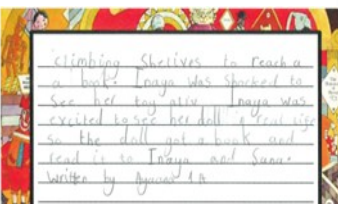 climbing Shelives to reach a
a book. Inaya was shocked to
See her toy aliv. Inaya was
excited to see her doll real life
so the doll got a book and
read it to Inaya and Sana.
Written by 1A